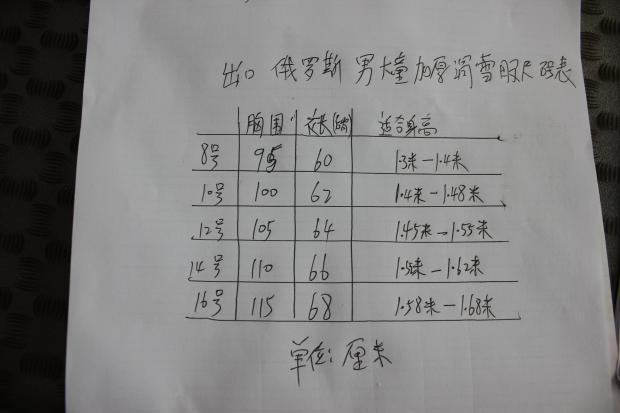 出口 俄罗斯 男大童加厚滑雪服尺码表
胸围 衣长 适合身高
8号 95 60 1.3米-1.4米
10号 100 62 1.4米-1.48米
12号 105 64 1.45米-1.55米
14号 110 66 1.5米-1.62米
16号 115 68 1.58米-1.68米
单位:厘米